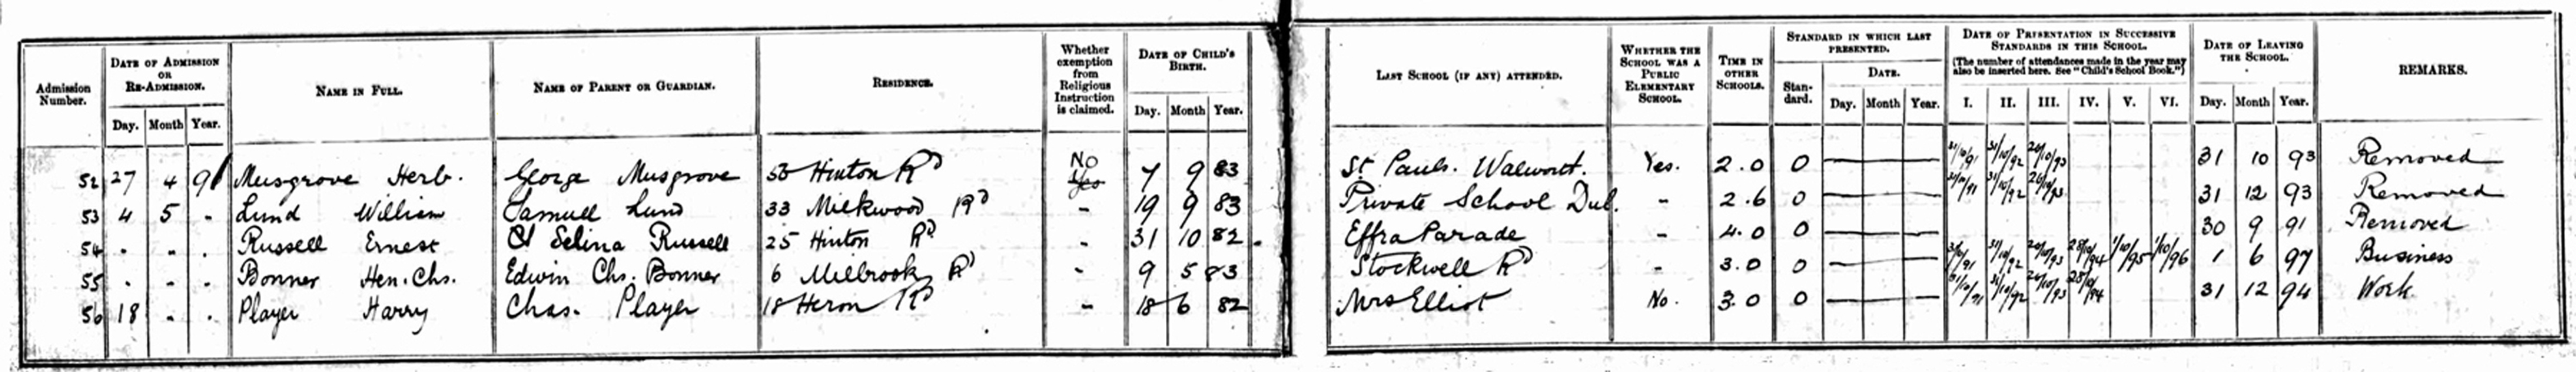 Admission Number.
DATE OF ADMISSION OR RE-ADMISSION.
Day. Month Year.
NAME IN FULL.
NAME OF PARENT OR GUARDIAN.
RESIDENCE.
Whether exemption from Religious Instruction is claimed.
DATE OF CHILD'S BIRTH.
Day. Month Year.
LAST SCHOOL (IF ANY) ATTENDED.
WHETHER THE SCHOOL WAS A PUBLIC ELEMENTARY SCHOOL.
TIME IN OTHER SCHOOLS.
STANDARD IN WHICH LAST PRESENTED.
Standard.
DATE.
Day. Month Year.
DATE OF PRESENTATION IN SUCCESSIVE STANDARDS IN THIS SCHOOL.
(The number of attendances made in the year may also be inserted here. See "Child's School Book.")
I. II. III. IV. V. VI.
DATE OF LEAVING THE SCHOOL.
Day. Month Year.
REMARKS.
52 27 4 91 Musgrove Herb. George Musgrove Hinton Rd No Yes 7 9 83 St Pauls. Walworth. Yes. 2.0 0 31/10/91 31/10/92 26/10/93 31 10 93 Removed
53 4 5 - Lund William Samuel Lund 33 Milkwood Rd - 19 9 83 Private School Dul. - 2.6 0 31/10/91 31/10/92 26/10/93 31 12 93 Removed
54 . . . Russell Ernest Selina Russell 25 Hinton Rd - 31 10 82 Effra Parade - 4.0 0 30 9 91 Removed
55 . . . Bonner Hen. Chs. Edwin Chs. Bonner 6 Milbrook Rd - 9 5 83 Stockwell Rd - 3.0 0 31/10/91 31/10/92 26/10/93 28/10/94 1/10/95 1/10/96 1 6 97 Business
56 18 . . Player Harry Chas. Player 18 Heron Rd - 18 6 82 Mrs Elliot No. 3.0 0 31/10/91 31/10/92 26/10/93 28/10/94 31 12 94 Work